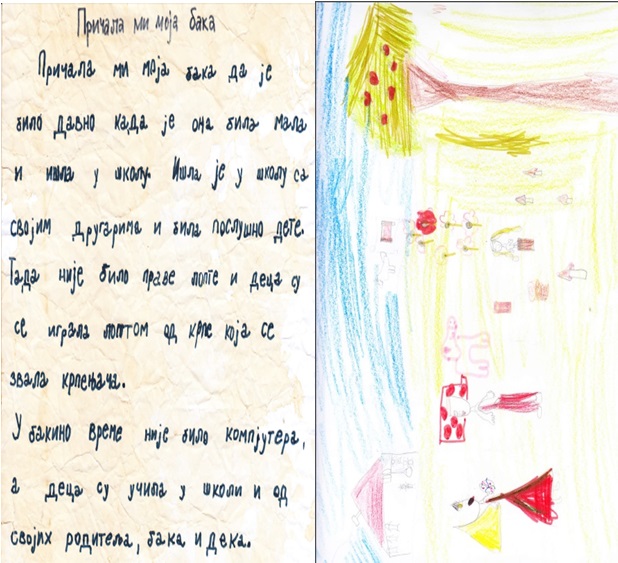 Причала ми моја бака
Причала ми моја бака да је
било давно када је она била мала
и ишла у школу. Ишла је у школу са
својим другарима и била послушно дете.
Тада није било праве лопте и деца су
се играла лоптом од крпе која се
звала крпењача.
У бакино време није било компјутера,
а деца су учила у школи и од
својих родитеља, бака и дека.